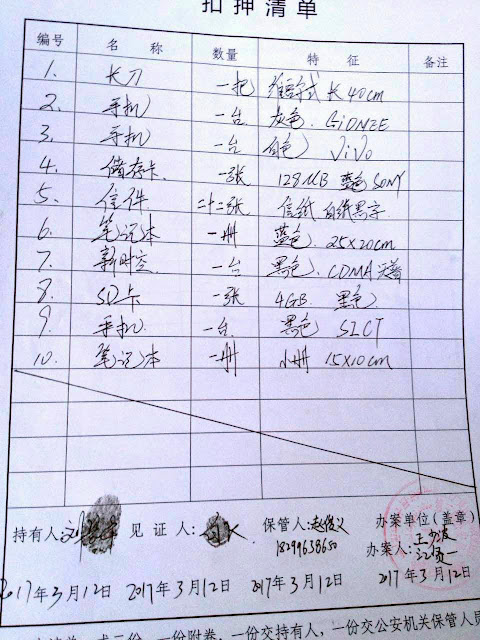 扣押清单
编号 名 称 数量 特 征 备注
1. 长刀 一把 维吾尔式 长40cm
2. 手机 一台 灰色. GiONEE
3. 手机 一台 白色 ViVo
4. 储存卡 一张 128MB 蓝色 SONY
5. 信件 二十二张 信纸 白纸黑字
6. 笔记本 一册 蓝色. 25×20cm
7. 新时空 一台 黑色. CDMA
8. SD卡 一张 4GB. 黑色
9. 手机. 一台 黑色 SICT
10. 笔记本 一册 小册 15×10cm
持有人: 见 证 人: 保管人: 赵俊义 办案单位(盖章)
18299638650 办案人:
2017年3月12日 2017年3月12日 2017年3月12日 2017年3月12日
一式三份，一份附卷，一份交持有人，一份交公安机关保管人员